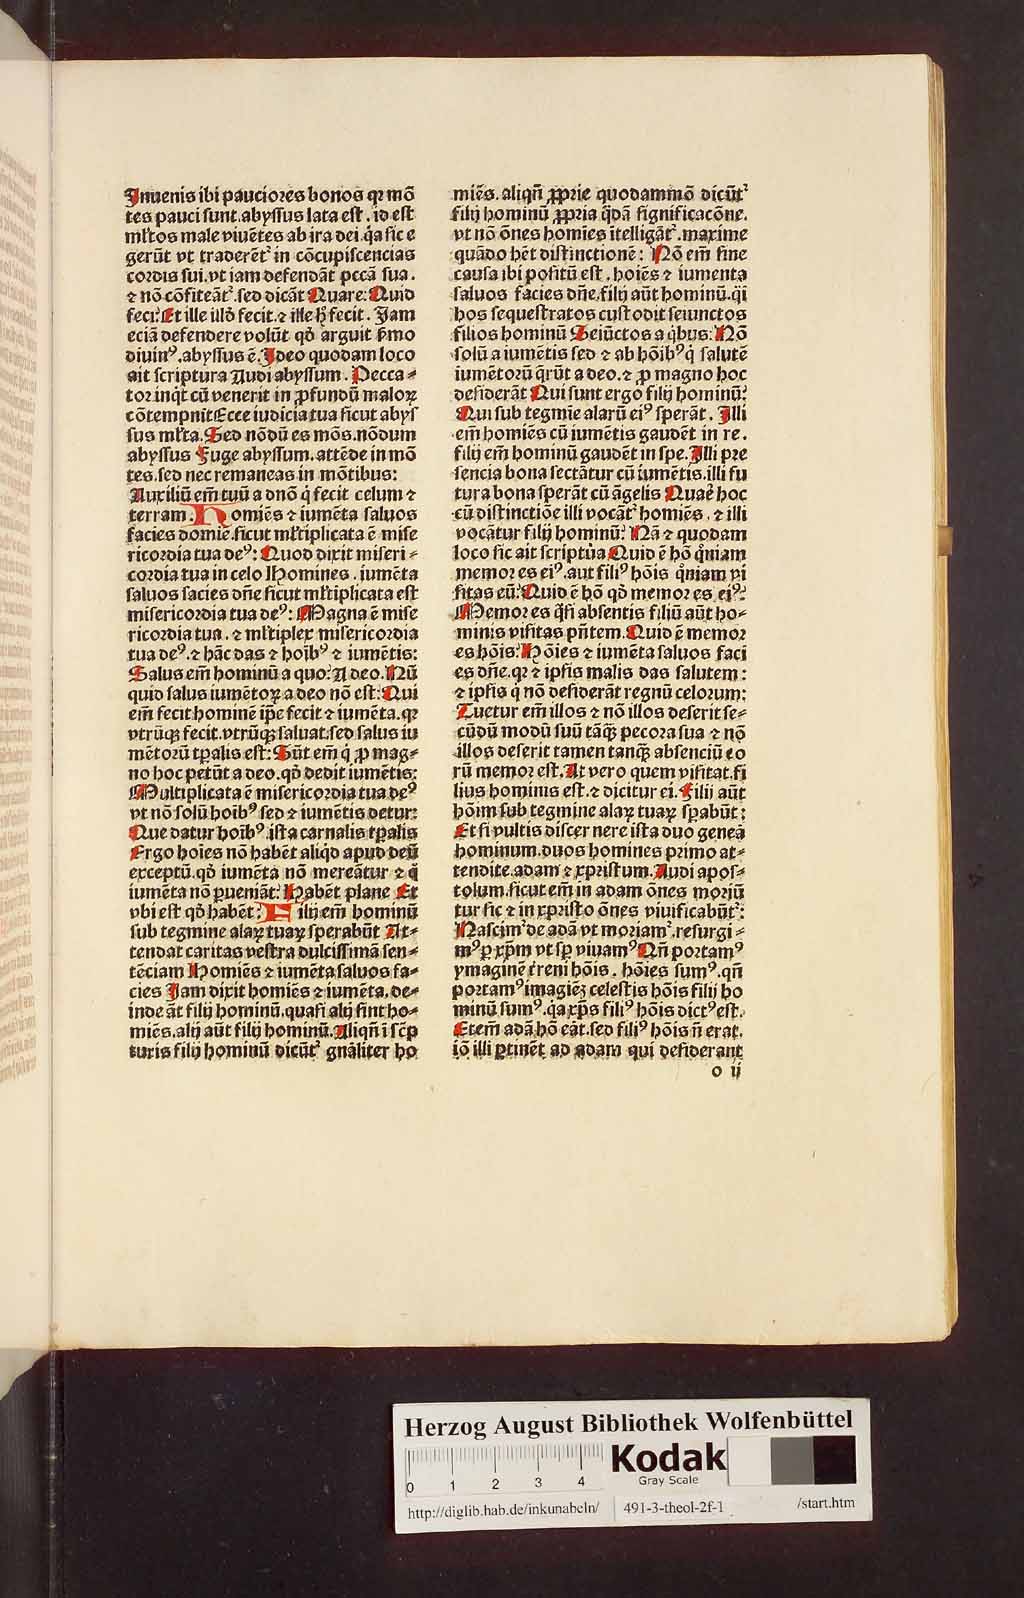 Inuenis ibi pauciores bonos qꝛ mō
tes pauci sunt. abyssus lata est. id est
ml̄tos male viuētes ab ira dei. q̄a sic e
gerūt vt traderēt᷒ in cōcupiscencias
cordis sui. vt iam defendāt pccā sua.
⁊ nō cōfiteāt᷒. sed dicāt Quare: Quid
feci: Et ille illō fecit. ⁊ ille h̄ fecit. Jam
eciā defendere volūt qd̄ arguit ẜmo
diuinꝰ. abyssus ē. Ideo quodam loco
ait scriptura Audi abyssum. Pecca⸗
tor inqt̄ cū venerit in ꝓfundū maloꝝ
cōtempnit Ecce iudicia tua sicut abys
sus ml̄ta. Sed nōdū es mōs. nōdum
abyssus Fuge abyssum. attēde in mō
tes. sed nec remaneas in mōtibus:
Auxiliū em̄ tuū a dnō q̄ fecit celum ⁊
terram. Homiēs ⁊ iumēta saluos
facies domiē. sicut ml̄tiplicata ē mise
ricordia tua deꝰ: Quod dixit miseri⸗
cordia tua in celo Homines. iumēta
saluos facies dn̄e sicut ml̄tiplicata est
misericordia tua deꝰ: Magna ē mise
ricordia tua. ⁊ ml̄tiplex misericordia
tua deꝰ. ⁊ hāc das ⁊ hoībꝰ ⁊ iumētis:
Salus em̄ hominū a quo: A deo. Nū
quid salus iumētoꝝ a deo nō est: Qui
em̄ fecit hominē ip̄e fecit ⁊ iumēta. qꝛ
vtrūqꝫ fecit. vtrūqꝫ saluat. sed salus iu
mētorū tꝑalis est: Sūt em̄ q̄ ꝓ mag⸗
no hoc petūt a deo. qd̄ dedit iumētis:
Multiplicata ē misericordia tua deꝰ
vt nō solū hoībꝰ sed ⁊ iumētis detur:
Que datur hoībꝰ. ista carnalis tꝑalis
Ergo hoīes nō habēt aliqd̄ apud deū
exceptū. qd̄ iumēta nō mereātur ⁊ q̄
iumēta nō ꝑueniāt: Habēt plane Et
vbi est qd̄ habēt: Filij em̄ hominū
sub tegmine alaꝝ tuaꝝ sperabūt At⸗
tendat caritas vestra dulcissimā sen⸗
tēciam Homiēs ⁊ iumēta saluos fa⸗
cies Jam dixit homiēs ⁊ iumēta. de⸗
inde āt filij hominū. quasi alij sint ho⸗
miēs. alij aūt filij hominū. Aliqn̄ ī sc̄p
turis filij hominū dicūt᷒ gnāliter ho
miēs. aliqn̄ ꝓprie quodammō dicūt᷒
filij hominū ꝓpria q̄dā significacōne.
vt nō ōnes homīes ītelligāt᷒. maxime
quādo hēt distinctionē: Nō em̄ sine
causa ibi positū est. hoīes ⁊ iumenta
saluos facies dn̄e. filij aūt hominū. q̄i
hos sequestratos custodit seiunctos
filios hominū Seiūctos a qbus: Nō
solū a iumētis sed ⁊ ab hōibꝰ q̄ salutē
iumētorū q̄rūt a deo. ⁊ ꝓ magno hoc
desiderāt Qui sunt ergo filij hominū:
Qui sub tegmīe alarū eiꝰ sperāt. Illi
em̄ homiēs cū iumētis gaudēt in re.
filij em̄ hominū gaudēt in spe. Illi pre
sencia bona sectātur cū iumētis. illi fu
tura bona sperāt cū āgelis Quaē hoc
cū distinctiōe illi vocāt᷒ homiēs. ⁊ illi
vocātur filij hominū: Nā ⁊ quodam
loco sic ait scriptura Quid ē hō qn̄iam
memor es eiꝰ. aut filiꝰ hōis qn̄iam vi
sitas eū: Quid ē hō qd̄ memor es eiꝰ:
Memor es q̄si absentis filiū aūt ho⸗
minis visitas pn̄tem. Quid ē memor
es hōis: Hōies ⁊ iumēta saluos faci
es dn̄e. qꝛ ⁊ ipsis malis das salutem:
⁊ ipsis q̄ nō desiderāt regnū celorum:
Tuetur em̄ illos ⁊ nō illos deserit se⸗
cūdū modū suū tāqꝫ pecora sua ⁊ nō
illos deserit tamen tanqꝫ absenciū eo
rū memor est. At vero quem visitat. fi
lius hominis est. ⁊ dicitur ei. Filij aūt
hōim sub tegmine alaꝝ tuaꝝ sꝑabūt:
Et si vultis discernere ista duo geneā
hominum. duos homines primo at⸗
tendite. adam ⁊ xpristum. Audi apos⸗
tolum. sicut em̄ in adam ōnes moriū
tur sic ⁊ in xpristo ōnes viuificabūt᷒:
Nascim᷒ de adā vt moriam᷒. resurgi⸗
mꝰ ꝑ xp̄m vt sꝑ viuamꝰ Qn̄ portamꝰ
ymaginē t̄reni hōis. hōies sumꝰ. qn̄
portamꝰ imagieꝫ celestis hōis filij ho
minū sumꝰ. q̄a xp̄s filiꝰ hōis dictꝰ est.
Etem̄ adā hō eāt. sed filiꝰ hōis n̄ erat.
iō illi ꝑtinēt ad adam qui desiderant
o ij
Herzog August Bibliothek Wolfenbüttel
0 1 2 3 4
Kodak
Gray Scale
http://diglib.hab.de/inkunabeln/ 491-3-theol-2f-1 /start.htm